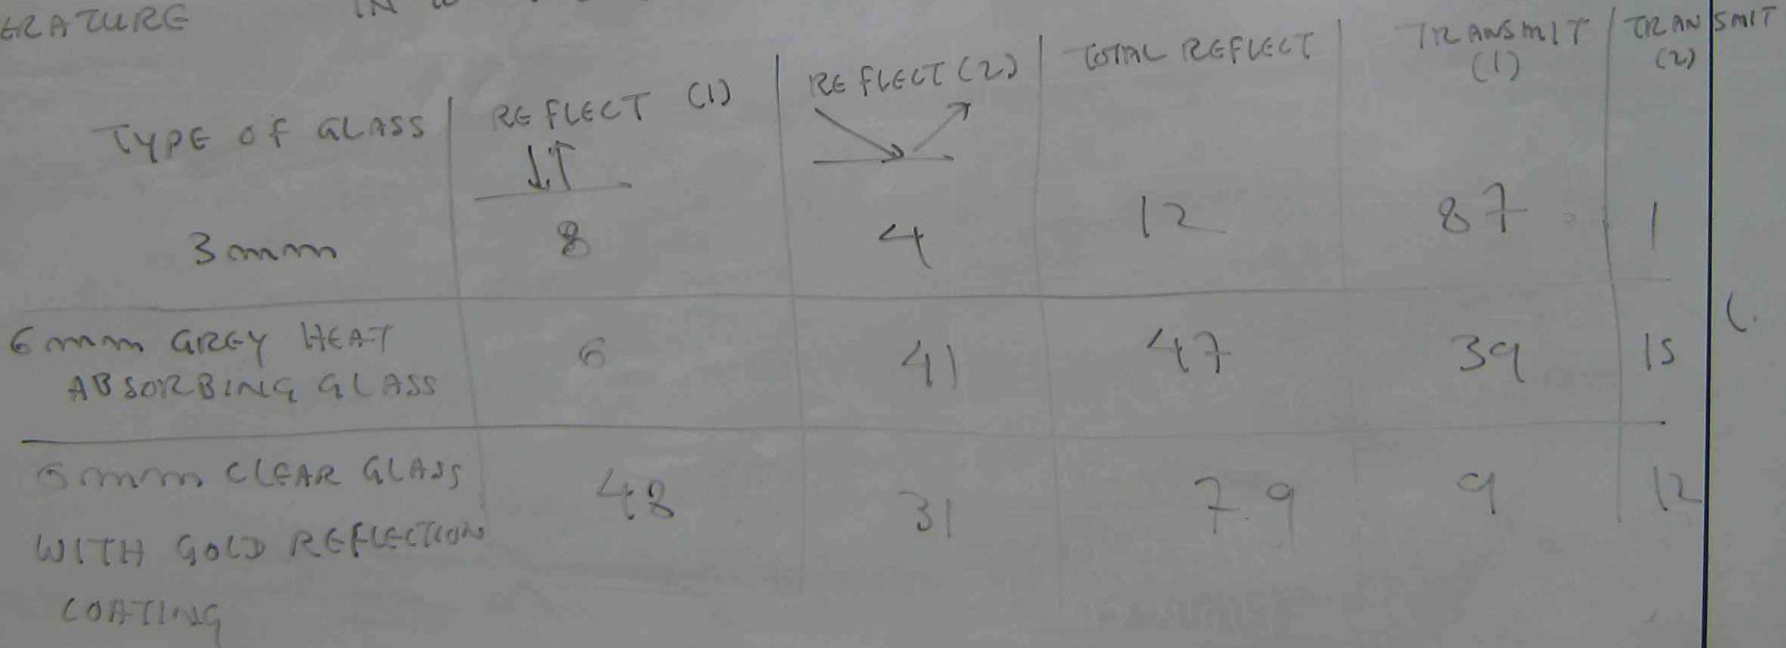 ERATURE IN
TYPE OF GLASS REFLECT (1) REFLECT (2) TOTAL REFLECT TRANSMIT (1) TRANSMIT (2)
3mm 8 4 12 87 1
6mm GREY HEAT
ABSORBING GLASS 6 41 47 39 15
6mm CLEAR GLASS
WITH GOLD REFLECTION
COATING 48 31 79 9 12